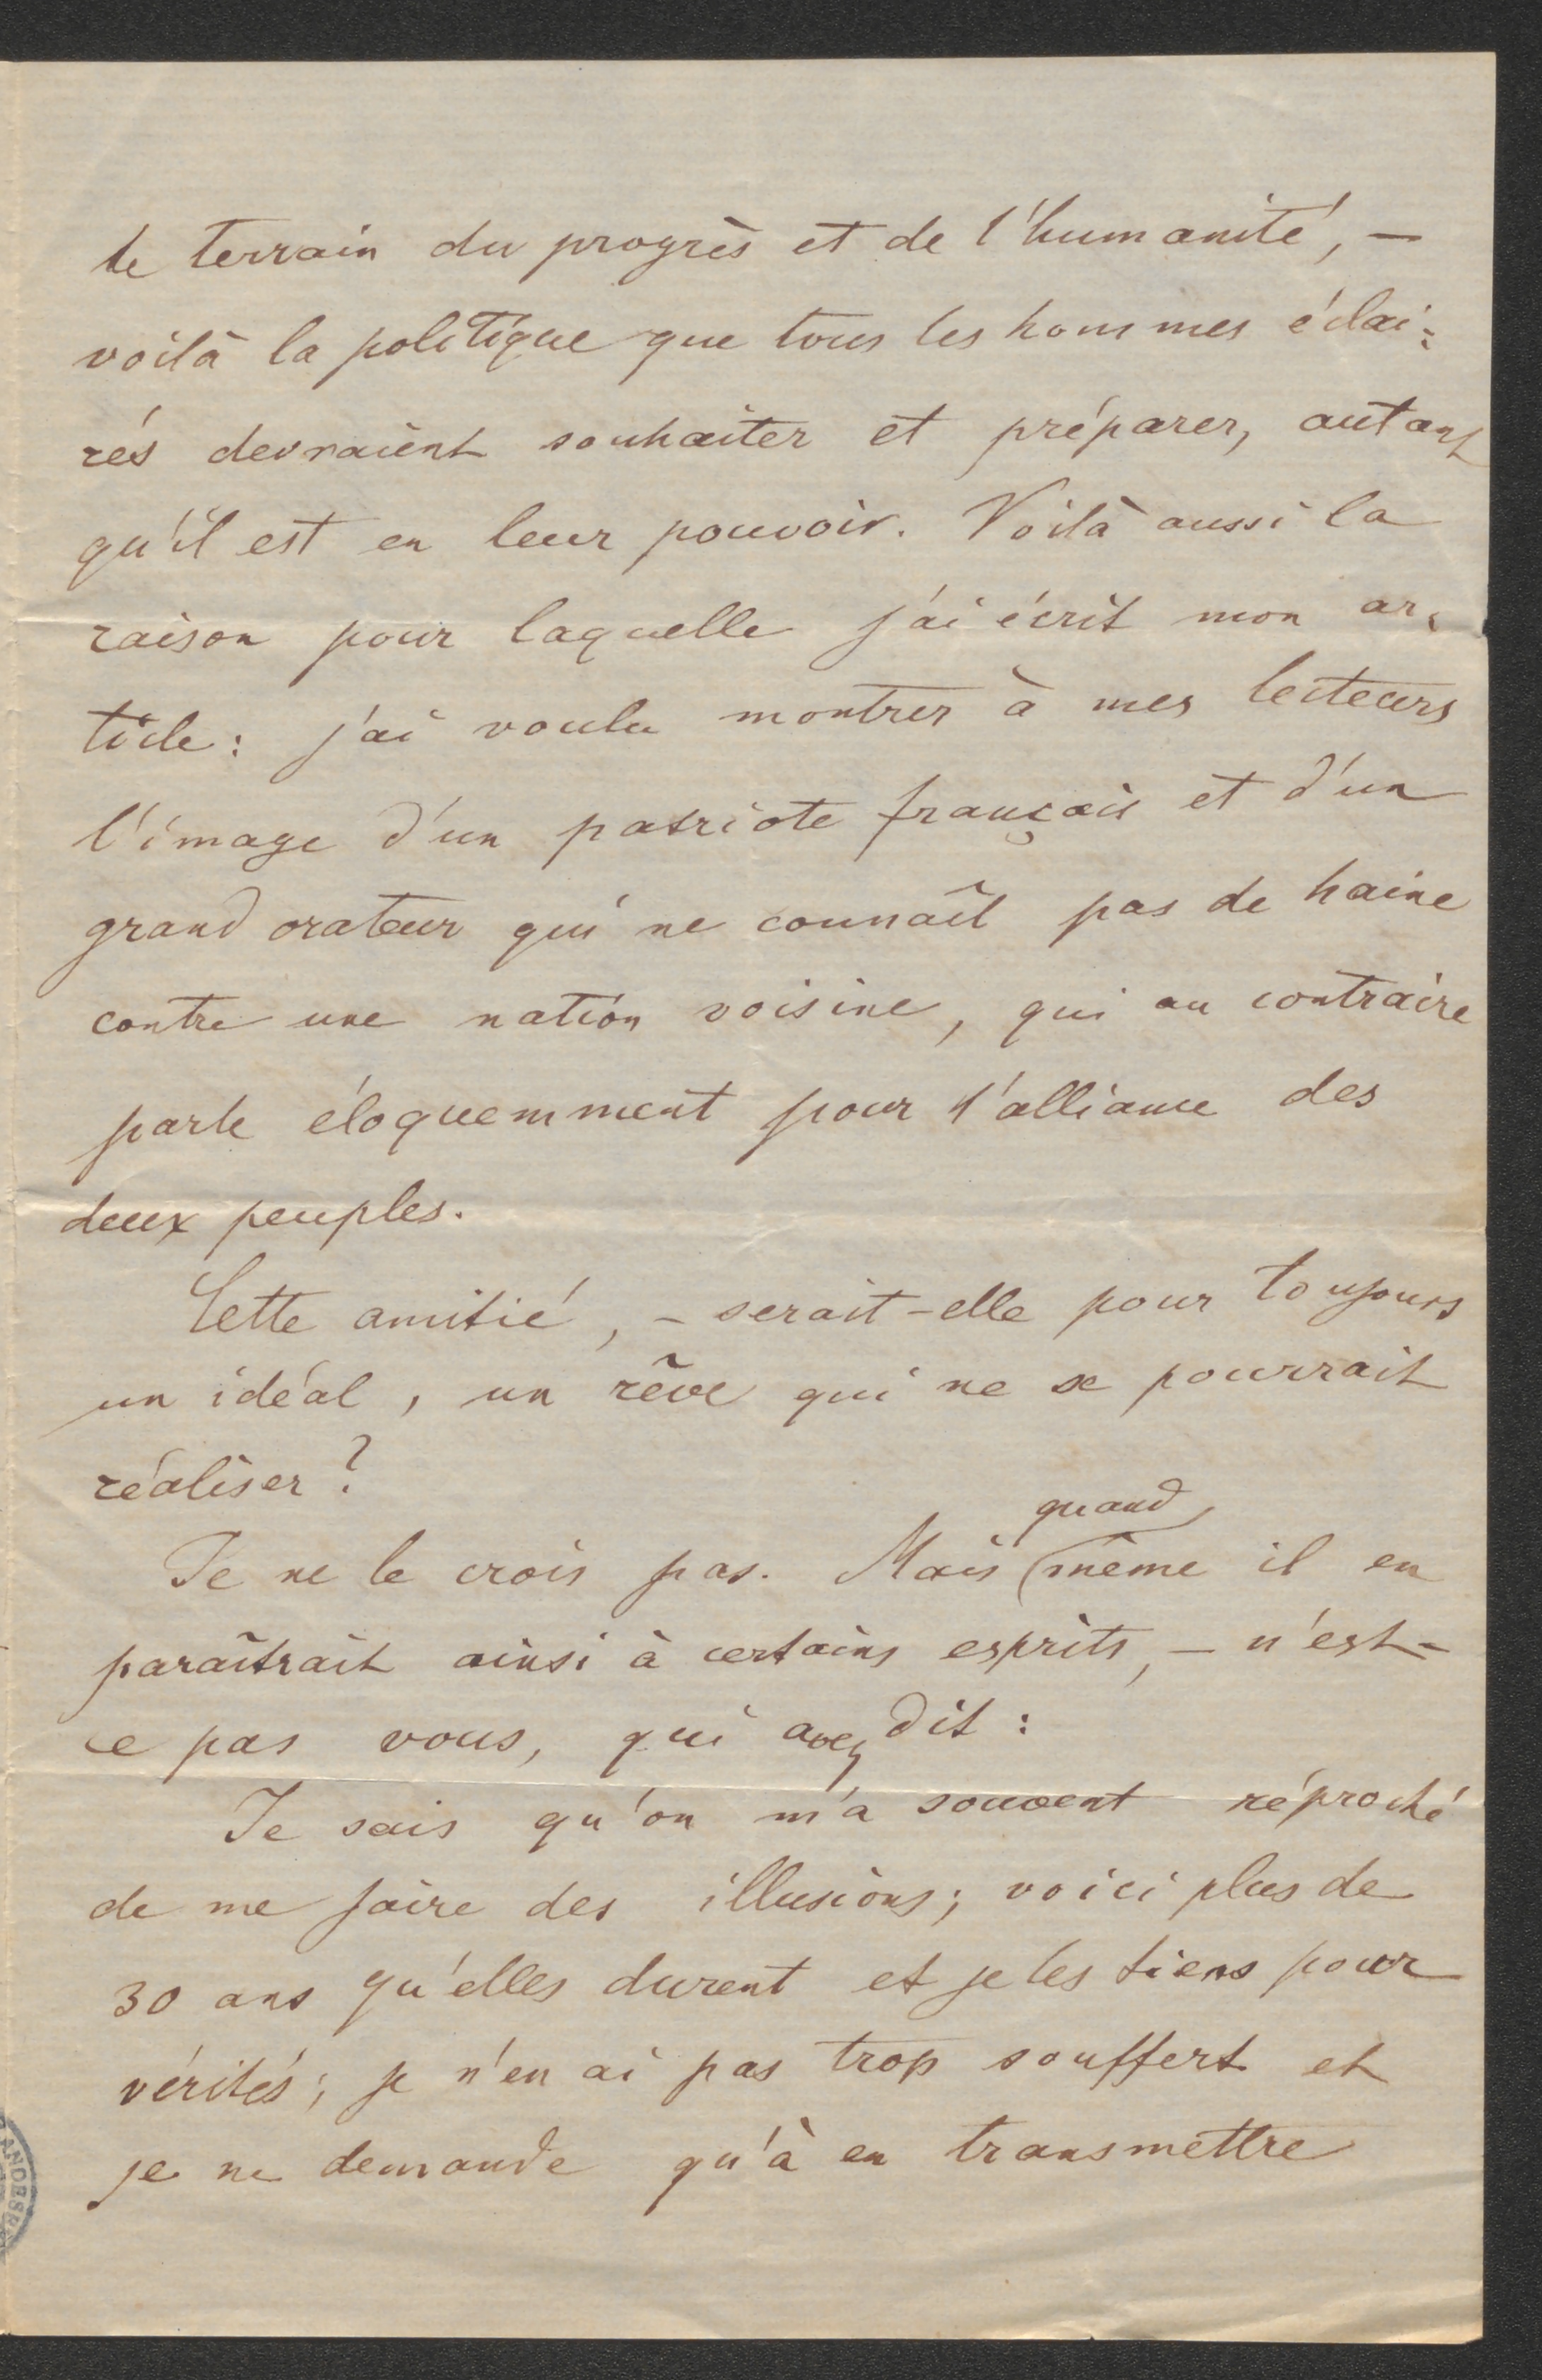 le terrain du progrès et de l'humanité, —
voilà la politique que tous les hommes éclai=
rés devraient souhaiter et préparer, autant
qu'il est en leur pouvoir. Voilà aussi la
raison pour laquelle j'ai écrit mon ar=
ticle: j'ai voulu montrer à mes lecteurs
l'image d'un patriote français et d'un
grand orateur qui ne connaît pas de haine
contre une nation voisine, qui au contraire
parle éloquemment pour l'alliance des
deux peuples.
Cette amitié, – serait-elle pour toujours
un idéal, un rêve qui ne se pourrait
réaliser?
quand
Je ne le crois pas. Mais même il en
paraîtrait ainsi à certains esprits, – n'est-
ce pas vous, qui avez dit:
Je sais qu'on m'a souvent réproché
de me faire des illusions; voici plus de
30 ans qu'elles durent et je les tiens pour
vérités; je n'en ai pas trop souffert et
je ne demande qu'à en transmettre